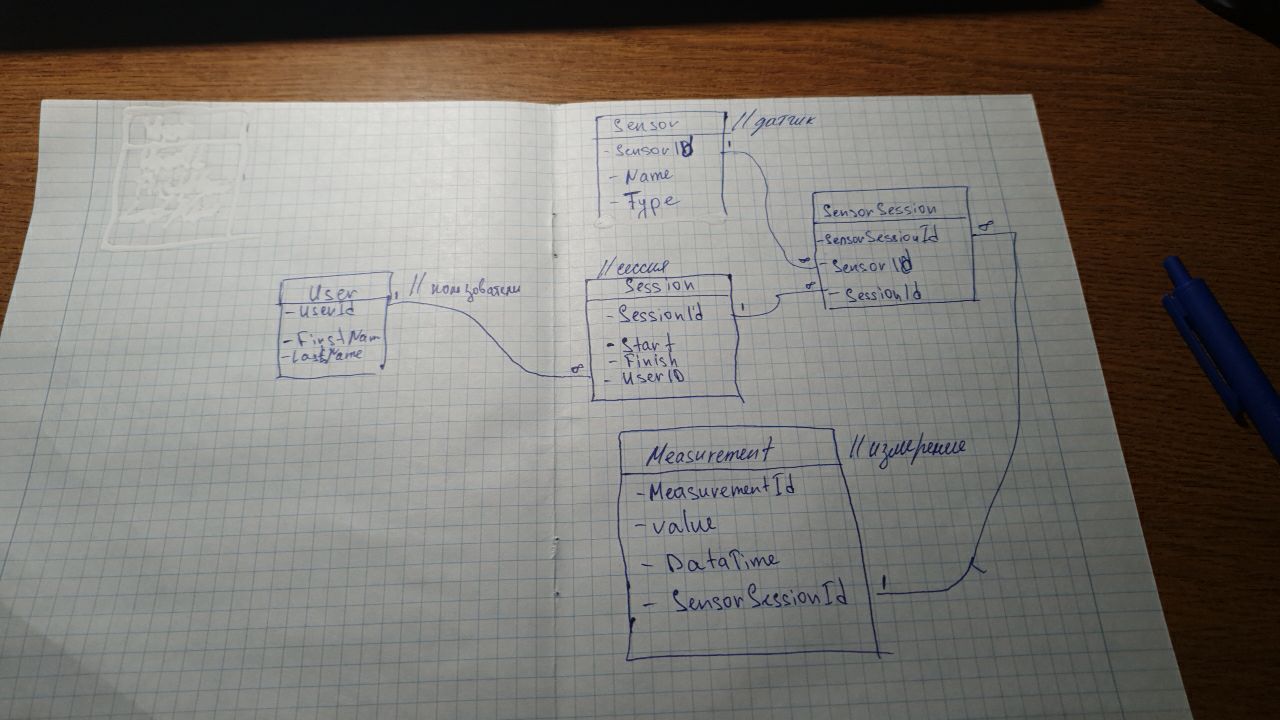 Sensor
// датчик
- SensorID
- Name
- Type
SensorSession
- SensorSessionId
- SensorID
- SessionId
1
∞
∞
∞
// сессия
Session
- SessionId
- Start
- Finish
- UserID
1
User
// пользователи
- UserId
- FirstNam
- LastName
1
∞
Measurement
// измерение
- MeasurementId
- value
- DataTime
- SensorSessionId
1